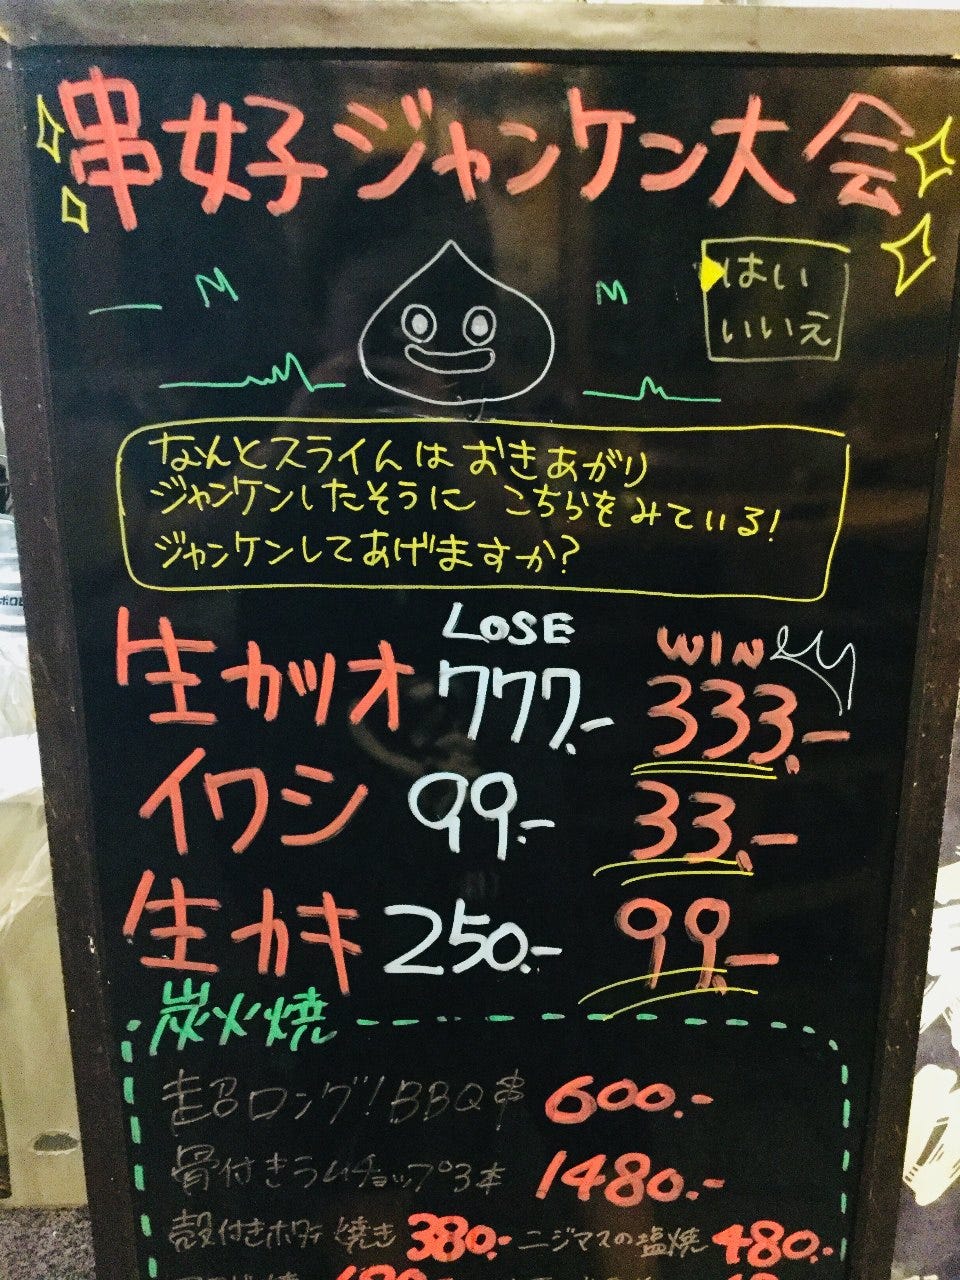 串好ジャンケン大会
はい
いいえ
なんとスライムは おきあがり
ジャンケンしたそうに こちらをみている!
ジャンケンしてあげますか?
LOSE WIN
生カツオ 777.- 333.-
イワシ 99.- 33.-
生カキ 250.- 99.-
炭火焼
超ロング!BBQ串 600.-
骨付きラムチョップ3本 1480.-
殻付きホタテ焼き 380.- ニジマスの塩焼 480.-